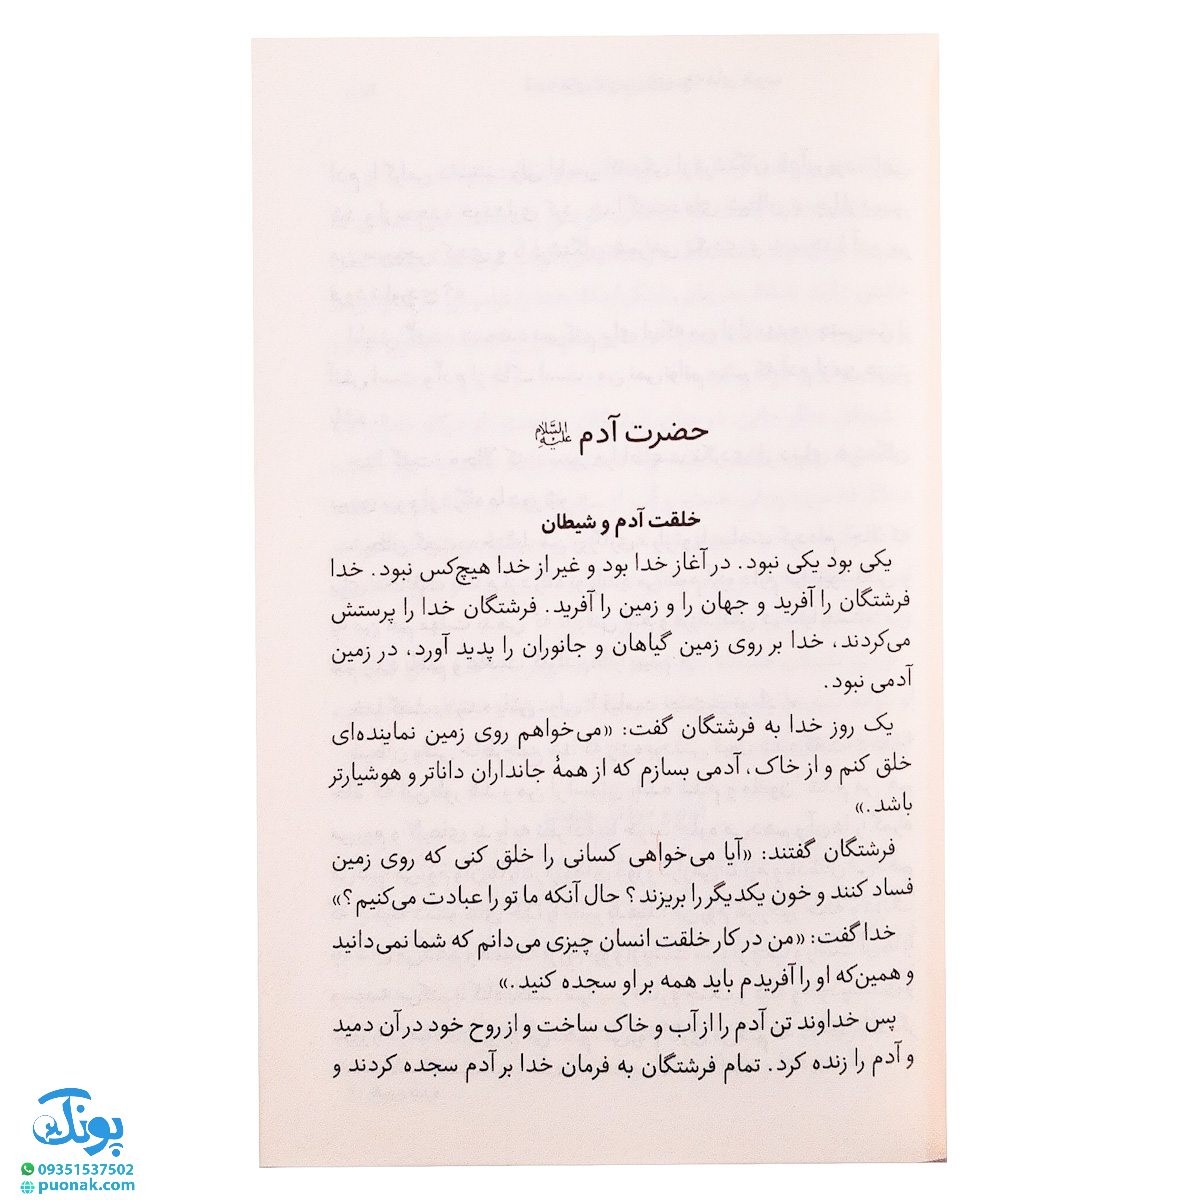 حضرت آدم علیه السّلام
خلقت آدم و شیطان
یکی بود یکی نبود. در آغاز خدا بود و غیر از خدا هیچ‌کس نبود. خدا
فرشتگان را آفرید و جهان را و زمین را آفرید. فرشتگان خدا را پرستش
می‌کردند، خدا بر روی زمین گیاهان و جانوران را پدید آورد، در زمین
آدمی نبود.
یک روز خدا به فرشتگان گفت: «می‌خواهم روی زمین نماینده‌ای
خلق کنم و از خاک، آدمی بسازم که از همهٔ جانداران داناتر و هوشیارتر
باشد.»
فرشتگان گفتند: «آیا می‌خواهی کسانی را خلق کنی که روی زمین
فساد کنند و خون یکدیگر را بریزند؟ حال آنکه ما تو را عبادت می‌کنیم؟»
خدا گفت: «من در کار خلقت انسان چیزی می‌دانم که شما نمی‌دانید
و همین‌که او را آفریدم باید همه بر او سجده کنید.»
پس خداوند تن آدم را از آب و خاک ساخت و از روح خود در آن دمید
و آدم را زنده کرد. تمام فرشتگان به فرمان خدا بر آدم سجده کردند و
پونک
09351537502
puonak.com